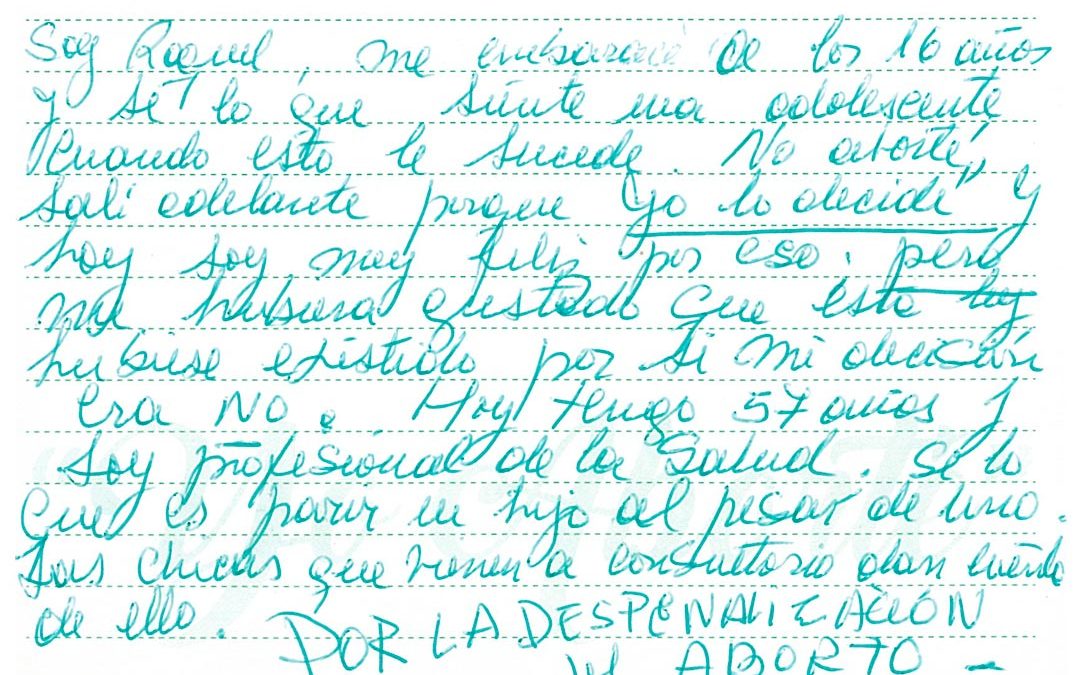 Soy Raquel, me embaracé a los 16 años
y sé lo que siente una adolescente
cuando esto le sucede. No aborté,
salí adelante porque "yo lo decidí" y
hoy soy muy feliz por eso. pero
me hubiera gustado que esta ley
hubiese existido por si mi decisión
era NO. Hoy tengo 57 años y
soy profesional de la salud. Sé lo
que es parir un hijo al pesar de uno.
Las chicas que vienen a consultorio dan cuenta
de ello. POR LA DESPENALIZACIÓN
del ABORTO -